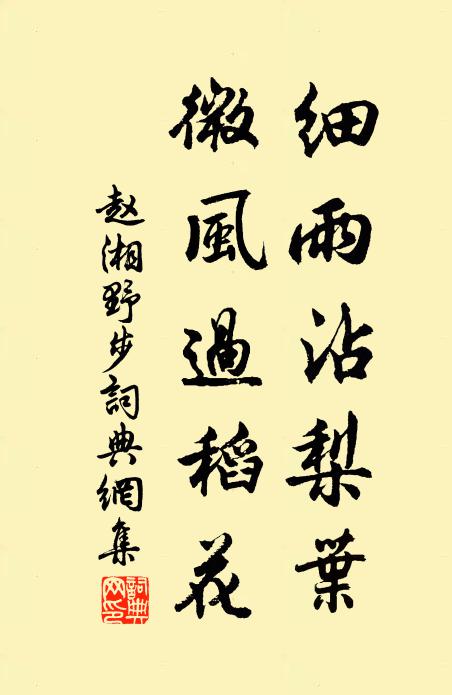 细雨沾梨葉
微風過稻花
赵湘野步詞典網集
詞典網印